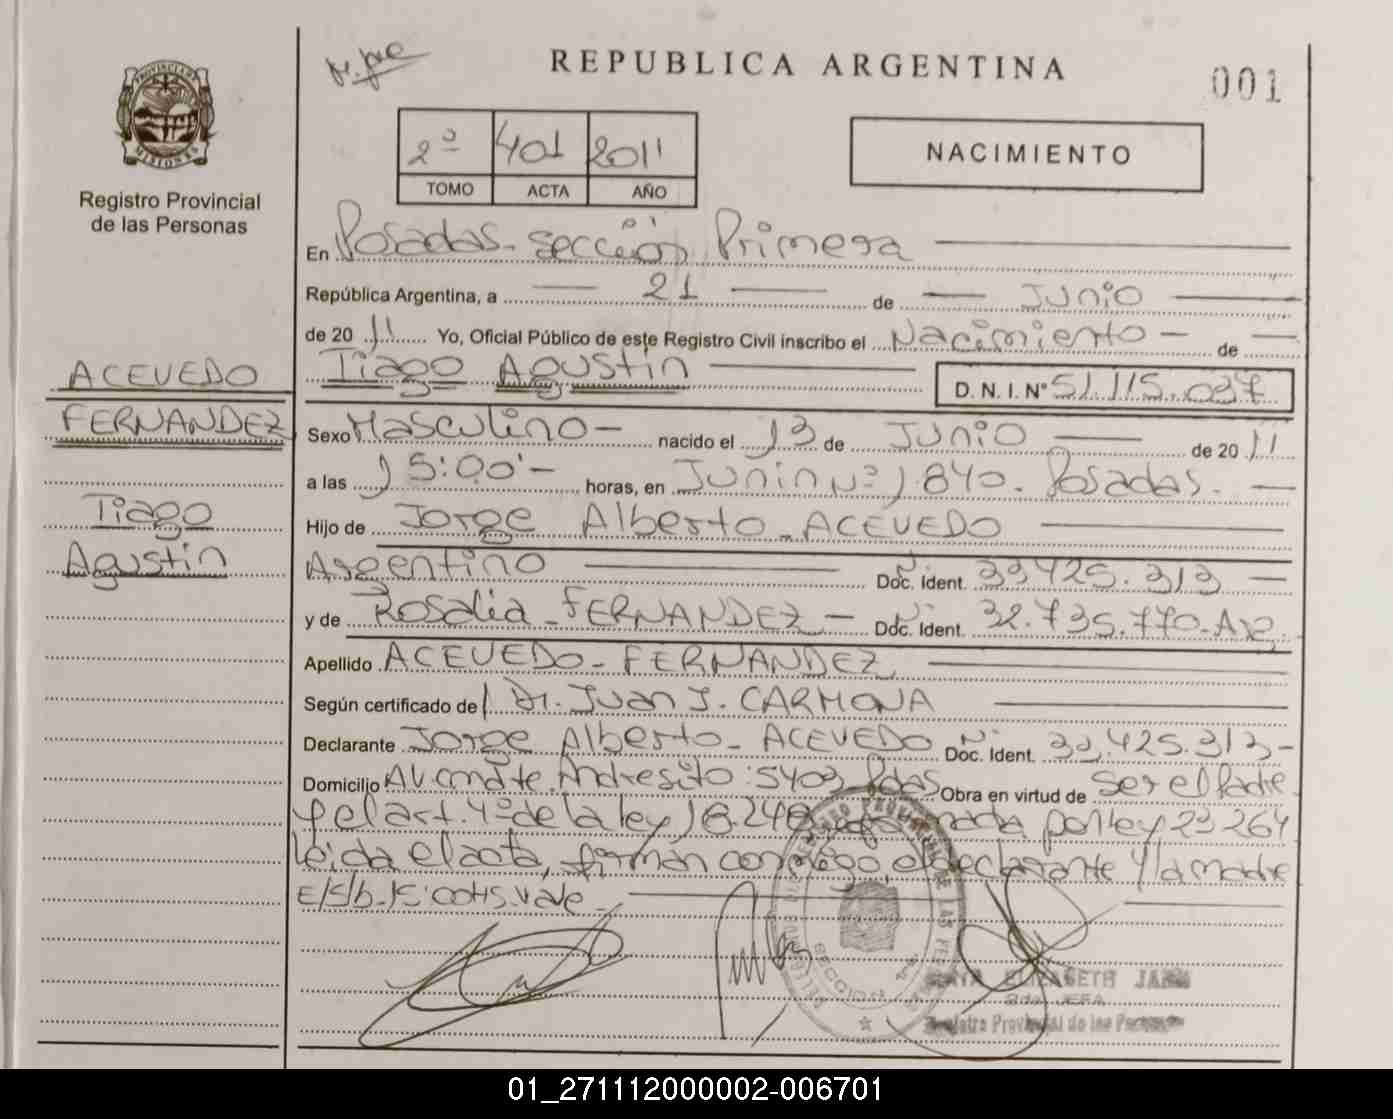 REPUBLICA ARGENTINA
001
PROVINCIA DE
MISIONES
Registro Provincial
de las Personas
2º 401 2011
TOMO ACTA AÑO
NACIMIENTO
En Posadas - sección Primera
República Argentina, a 21 de Junio
de 2011 Yo, Oficial Público de este Registro Civil inscribo el Nacimiento - de
Tiago Agustin D. N. I. Nº 51.115.037
ACEVEDO
FERNANDEZ
Tiago
Agustin
Sexo Masculino - nacido el 13 de Junio de 2011
a las 15:00'- horas, en Junin Nº 1.840. Posadas. -
Hijo de Jorge Alberto - ACEVEDO
Argentino Doc. Ident. 33.425.313 -
y de Rosalia - FERNANDEZ - Doc. Ident. 32.735.770-
Apellido ACEVEDO - FERNANDEZ
Según certificado de Dr. Juan J. CARMONA
Declarante Jorge Alberto - ACEVEDO Doc. Ident. 33.425.313-
Domicilio Av Andresito: 5403 Pdas Obra en virtud de ser el Padre
y el art. 4º de la ley 18.248 por ley 23264
leida el acta, firman conmigo, el declarante y la madre
E/S/b vale -
SECCION 1ª
ELIZABETH
2da JEFA
Registro Provincial de las Personas
01_271112000002-006701